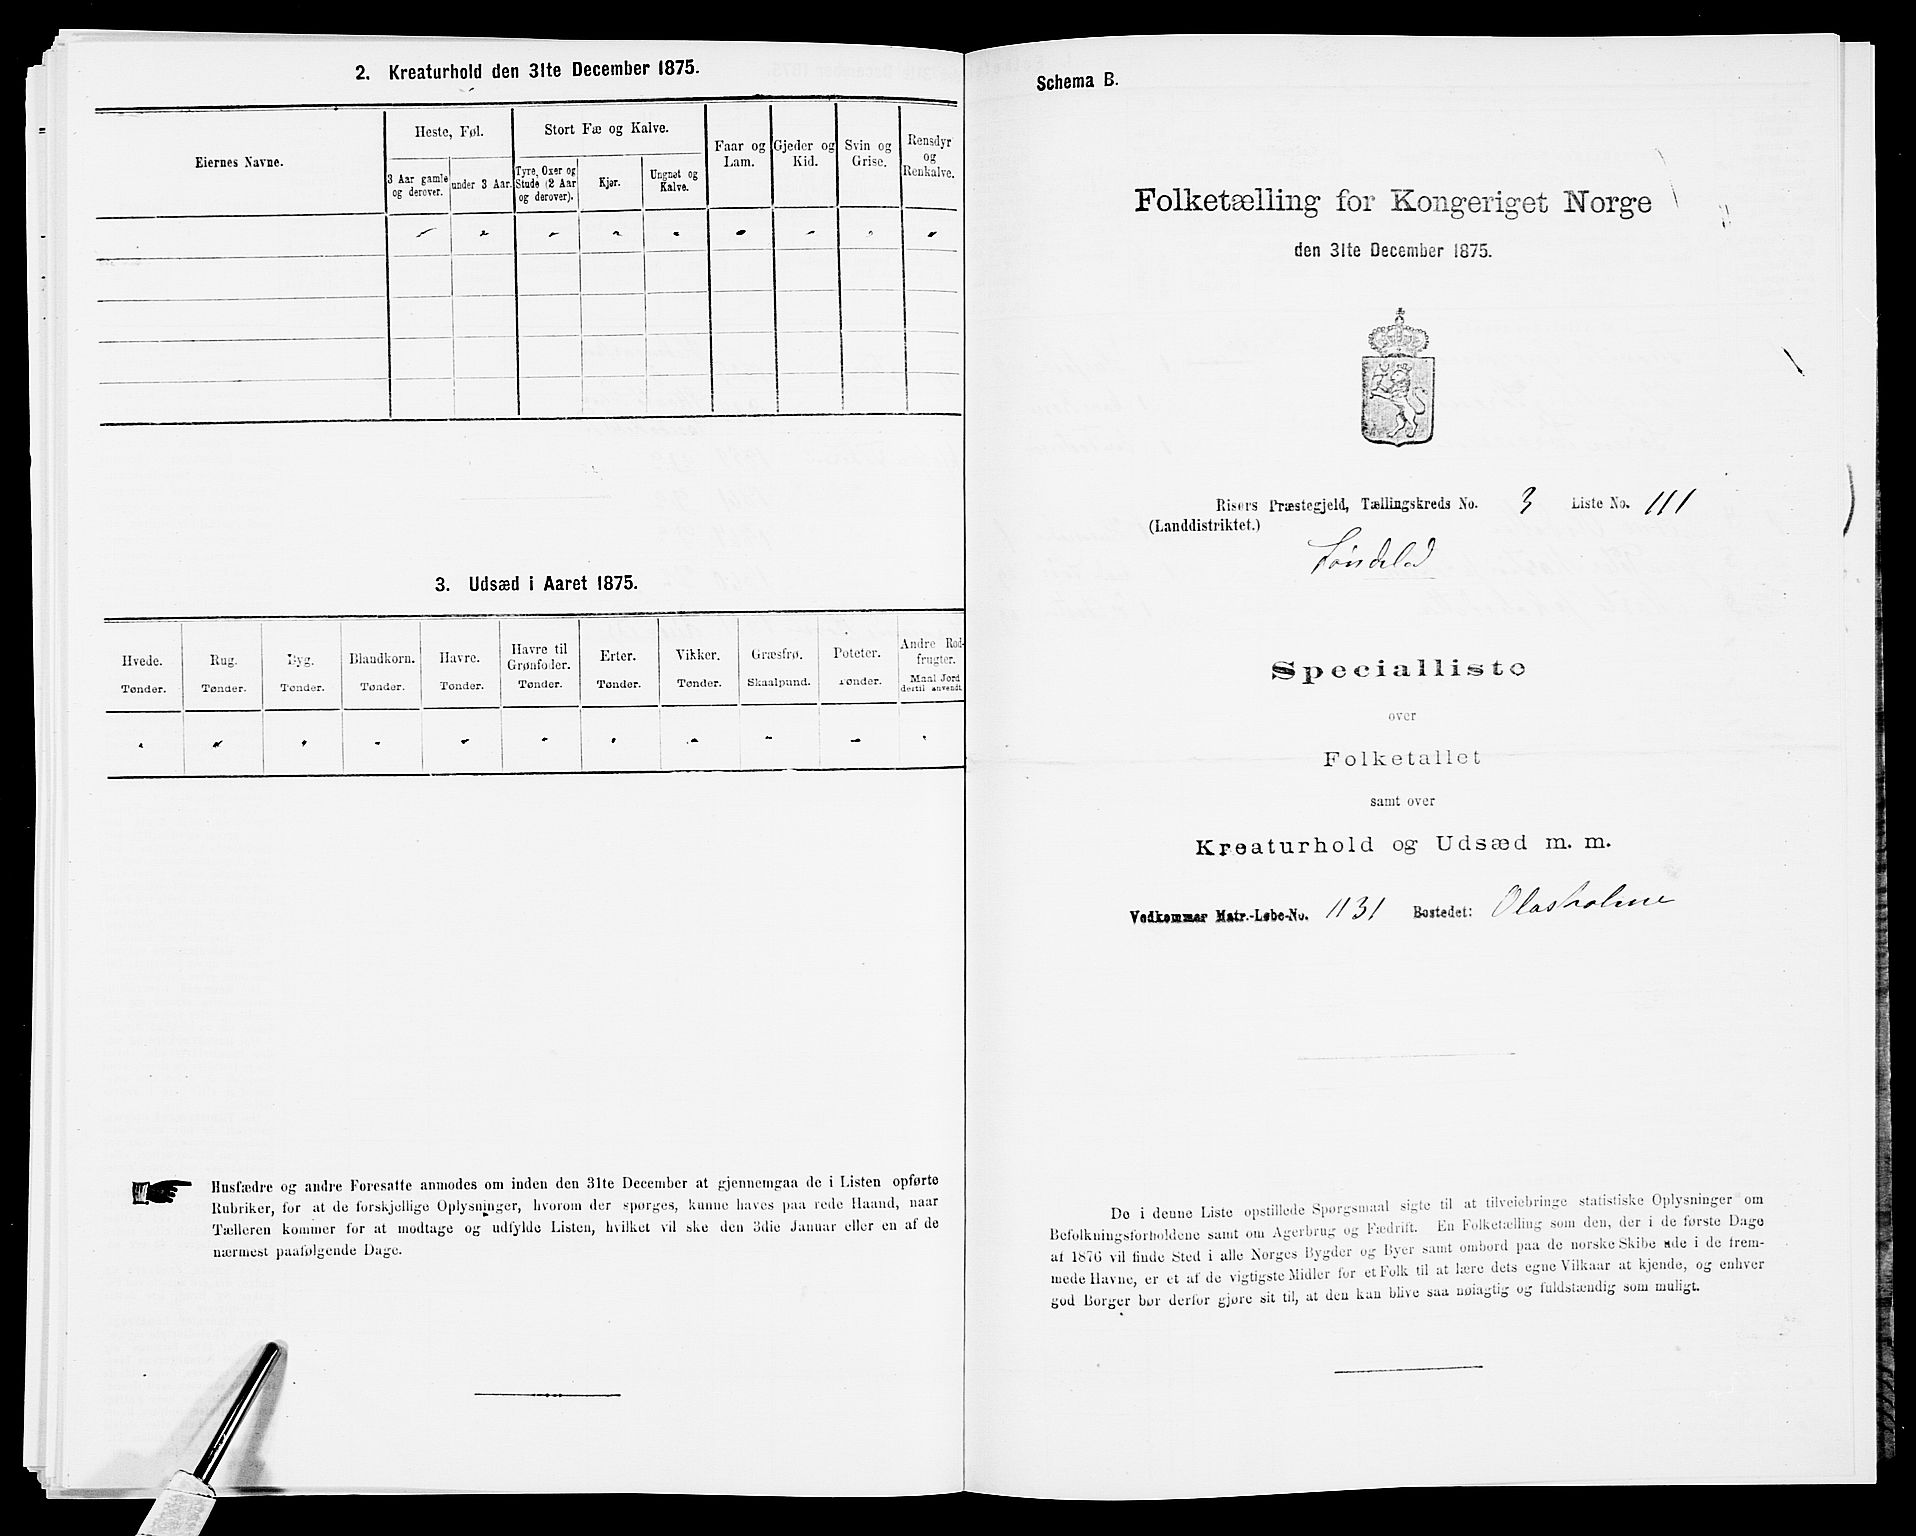 2. Kreaturhold den 31te December 1875.
Eiernes Navne.
Heste, Føl.
3 Aar gamle og derover.
under 3 Aar.
Stort Fæ og Kalve.
Tyre, Oxer og Stude (2 Aar og derover).
Kjør.
Ungnøt og Kalve.
Faar og Lam.
Gjeder og Kid.
Svin og Grise.
Rensdyr og Renkalve.
3. Udsæd i Aaret 1875.
Hvede. Tønder.
Rug. Tønder.
Byg. Tønder.
Blandkorn. Tønder.
Havre. Tønder.
Havre til Grønfoder. Tønder.
Erter. Tønder.
Vikker. Tønder.
Græsfrø. Skaalpund.
Poteter. Tønder.
Andre Rodfrugter. Maal Jord dertil anvendt.
Husfædre og andre Foresatte anmodes om inden den 31te December at gjennemgaa de i Listen opførte
Rubriker, for at de forskjellige Oplysninger, hvorom der spørges, kunne haves paa rede Haand, naar
Tælleren kommer for at modtage og udfylde Listen, hvilket vil ske den 3die Januar eller en af de
nærmest paafølgende Dage.
Schema B.
Folketælling for Kongeriget Norge
den 31te December 1875.
Risørs Præstegjeld, Tællingskreds No. 3 Liste No. 111
(Landdistriktet.)
Søndeled
Specialliste
over
Folketallet
samt over
Kreaturhold og Udsæd m. m.
Vedkommer Matr.-Løbe-No. 1131 Bostedet: Olasholme
De i denne Liste opstillede Spørgsmaal sigte til at tilveiebringe statistiske Oplysninger om
Befolkningsforholdene samt om Agerbrug og Fædrift. En Folketælling som den, der i de første Dage
af 1876 vil finde Sted i alle Norges Bygder og Byer samt ombord paa de norske Skibe ude i de frem-
mede Havne, er et af de vigtigste Midler for et Folk til at lære dets egne Vilkaar at kjende, og enhver
god Borger bør derfor gjøre sit til, at den kan blive saa nøiagtig og fuldstændig som muligt.